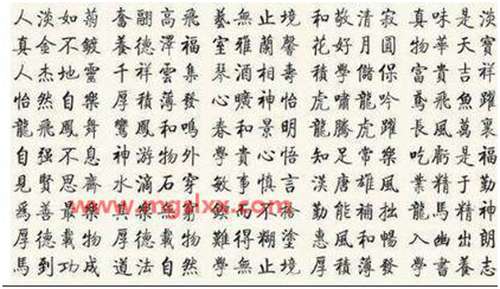 人淡如菊 奮翮高飛 藝無止境 和敬清寂 真味是淡
真金不鍍 養德澤福 室雅蘭馨 花好月圓 物華天寶
人杰地靈 千祥雲集 富貴吉祥
怡然自樂 厚積薄發 心曠神怡 虎嘯龍吟 鳶飛魚躍
龍飛鳳舞 鸞鳳和鳴 春和景明 龍騰虎躍 長風萬里
自强不息 神游物外 學貴心悟 知足常樂 吃虧是福
見賢思齊 水滴石穿 敏事慎言 漢唐雄風 業精于勤
為善最樂 勤能補拙 龍馬精神
厚德載物 厚德載物 難得糊塗 惠風和暢 入幽出朗
馬到功成 道法自然 學無止境 厚積薄發 學書養志